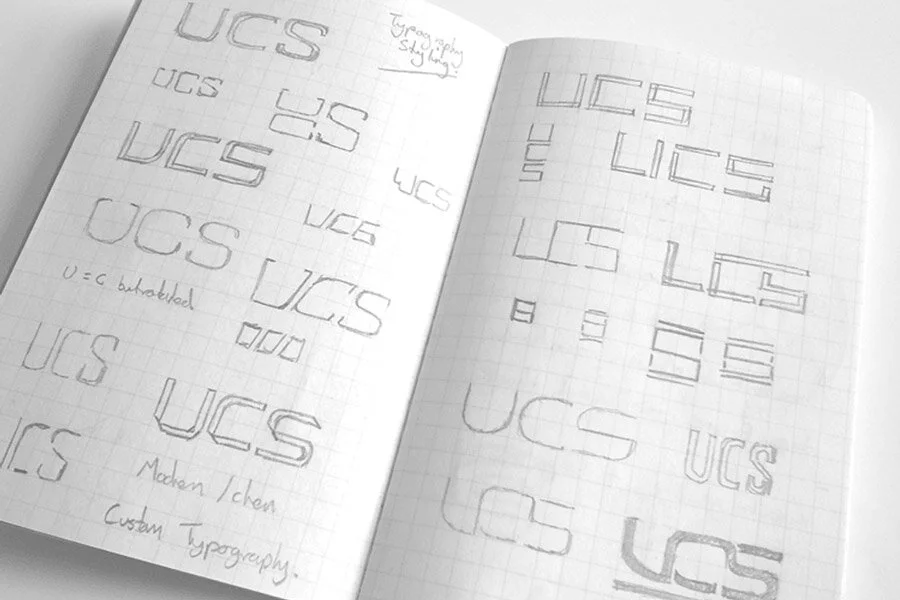 UCS
Typography
Styling.
UCS
UCS
UCS
UCS
UCS
UCS
U = C but rotated
UCS
UCS
UCS
UCS
Modern / clean
Custom Typography.
UCS
U
C
S
UCS
UCS
UCS
S S
UCS
UCS
UCS
UCS